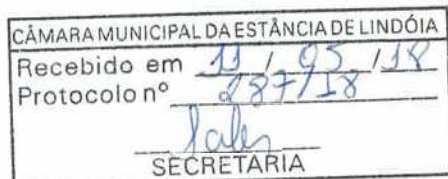 CÂMARA MUNICIPAL DA ESTÂNCIA DE LINDÓIA
Recebido em 11 / 05 / 18
Protocolo nº 287/18
SECRETARIA